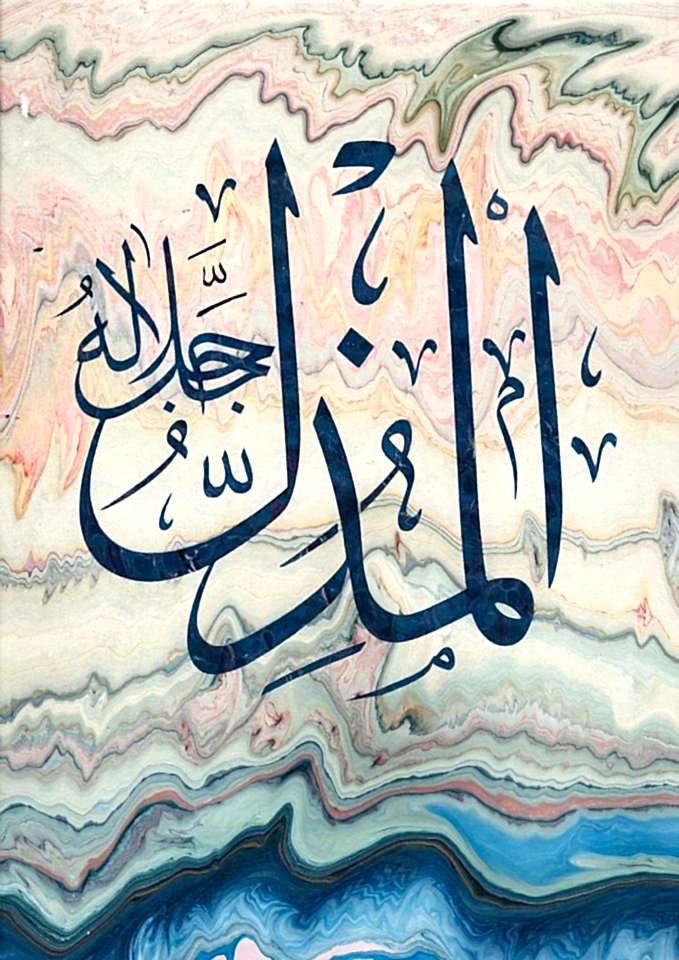 المذل
جل جلاله